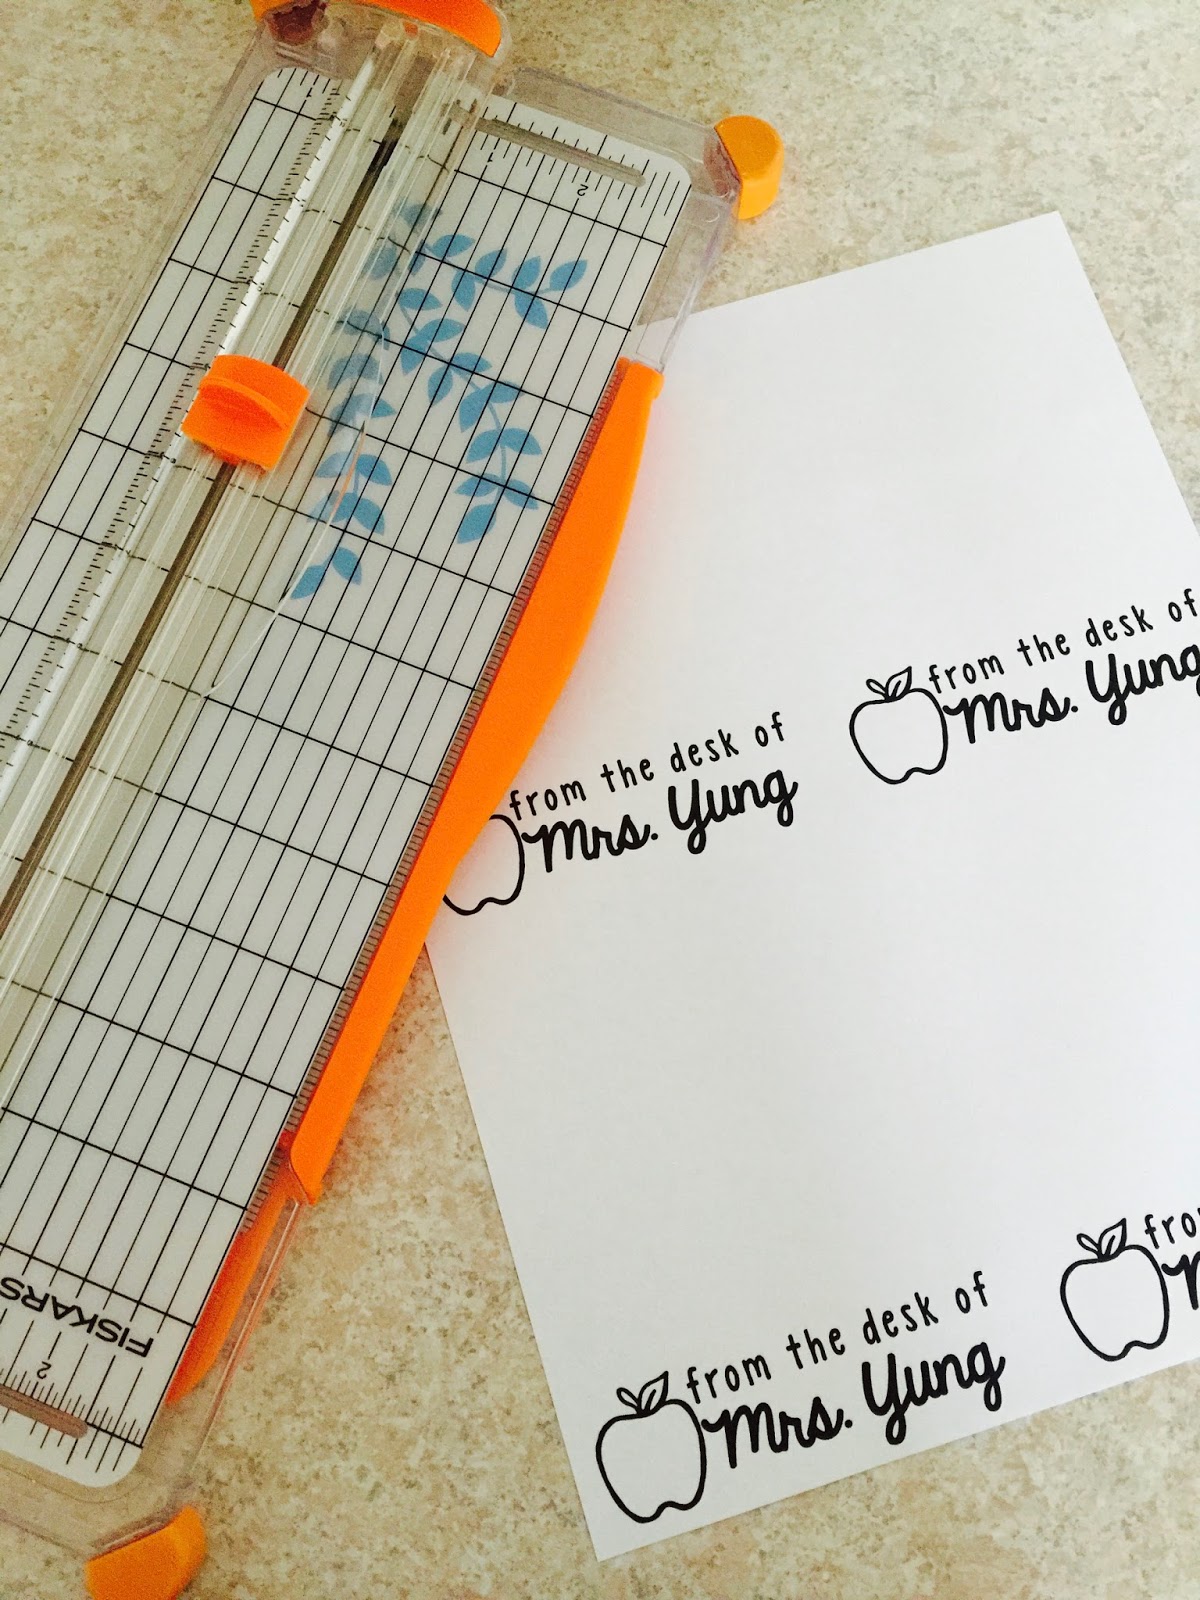 1
2
from the desk of
Mrs. Yung
from the desk of
Mrs. Yung
FISKARS
2
from the desk of
Mrs. Yung
fro